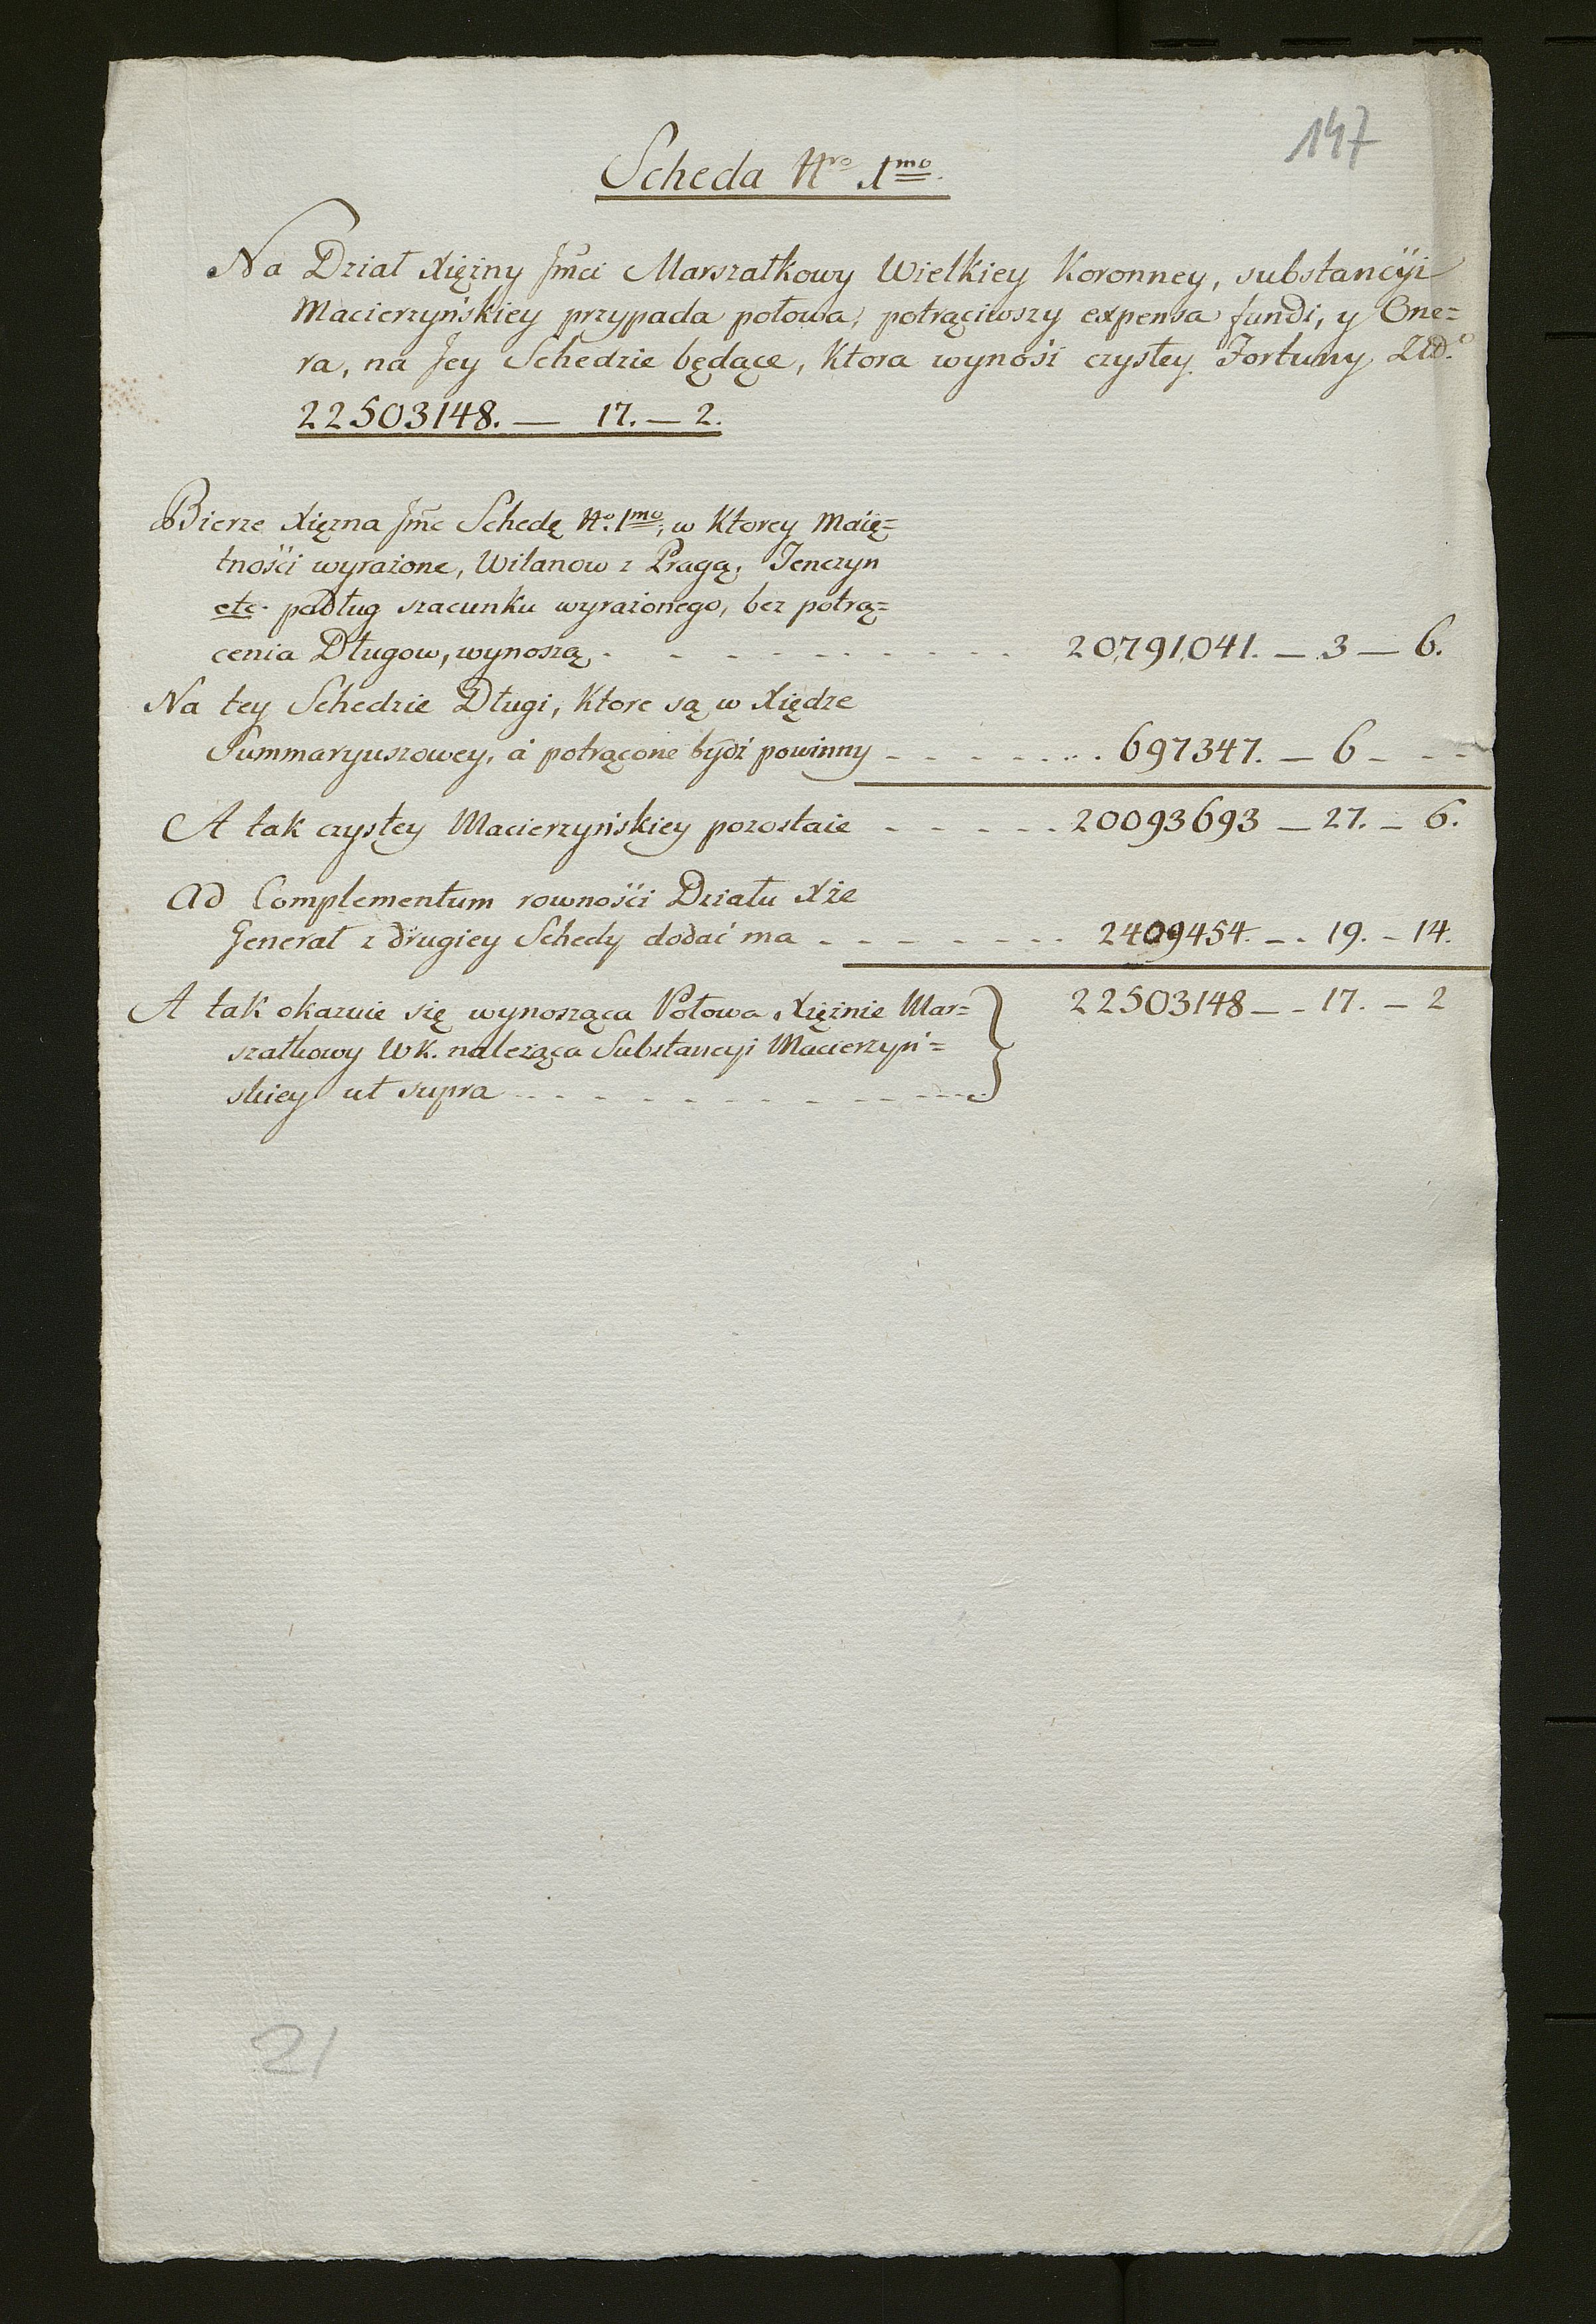 147
Scheda Nro 1mo.
Na Dział Xiężny Jmci Marszałkowy Wielkiey Koronney, substancÿi
Macierzyńskiey przypada połowa, potrąciwszy expensa fundi, y One=
ra, na Jey Schedzie będące, Ktora wynośi czystey Fortuny
22503148. — 17. — 2.
Bierze Xiężna Jmć Schedę No. 1mo, w Ktorey Maię=
tnośći wyrażone, Wilanow z Pragą, Tenczyn
etc. podług szacunku wyrażonego, bez potrą=
cenia Długow, wynoszą - - - - - - - - 20,791,041. — 3 — 6.
Na tey Schedzie Długi, Ktore są w Xiędze
Summaryuszowey, á potrącone bydź powinny - - - - - - 697347. — 6 - - -
A tak czystey Macierzyńskiey pozostaie - - - - - 20093693 — 27. — 6.
Ad Complementum rownośći Działu Xże
Generał z drugiey Schedy dodać ma - - - - - - - 2409454. - - 19. - 14.
A tak okazuie się wynosząca Połowa Xiężnie Mar= 22503148 - - 17. — 2
szałkowy WK. należąca Substancyi Macierzyń=
skiey ut supra - - - - - - - - - -
21